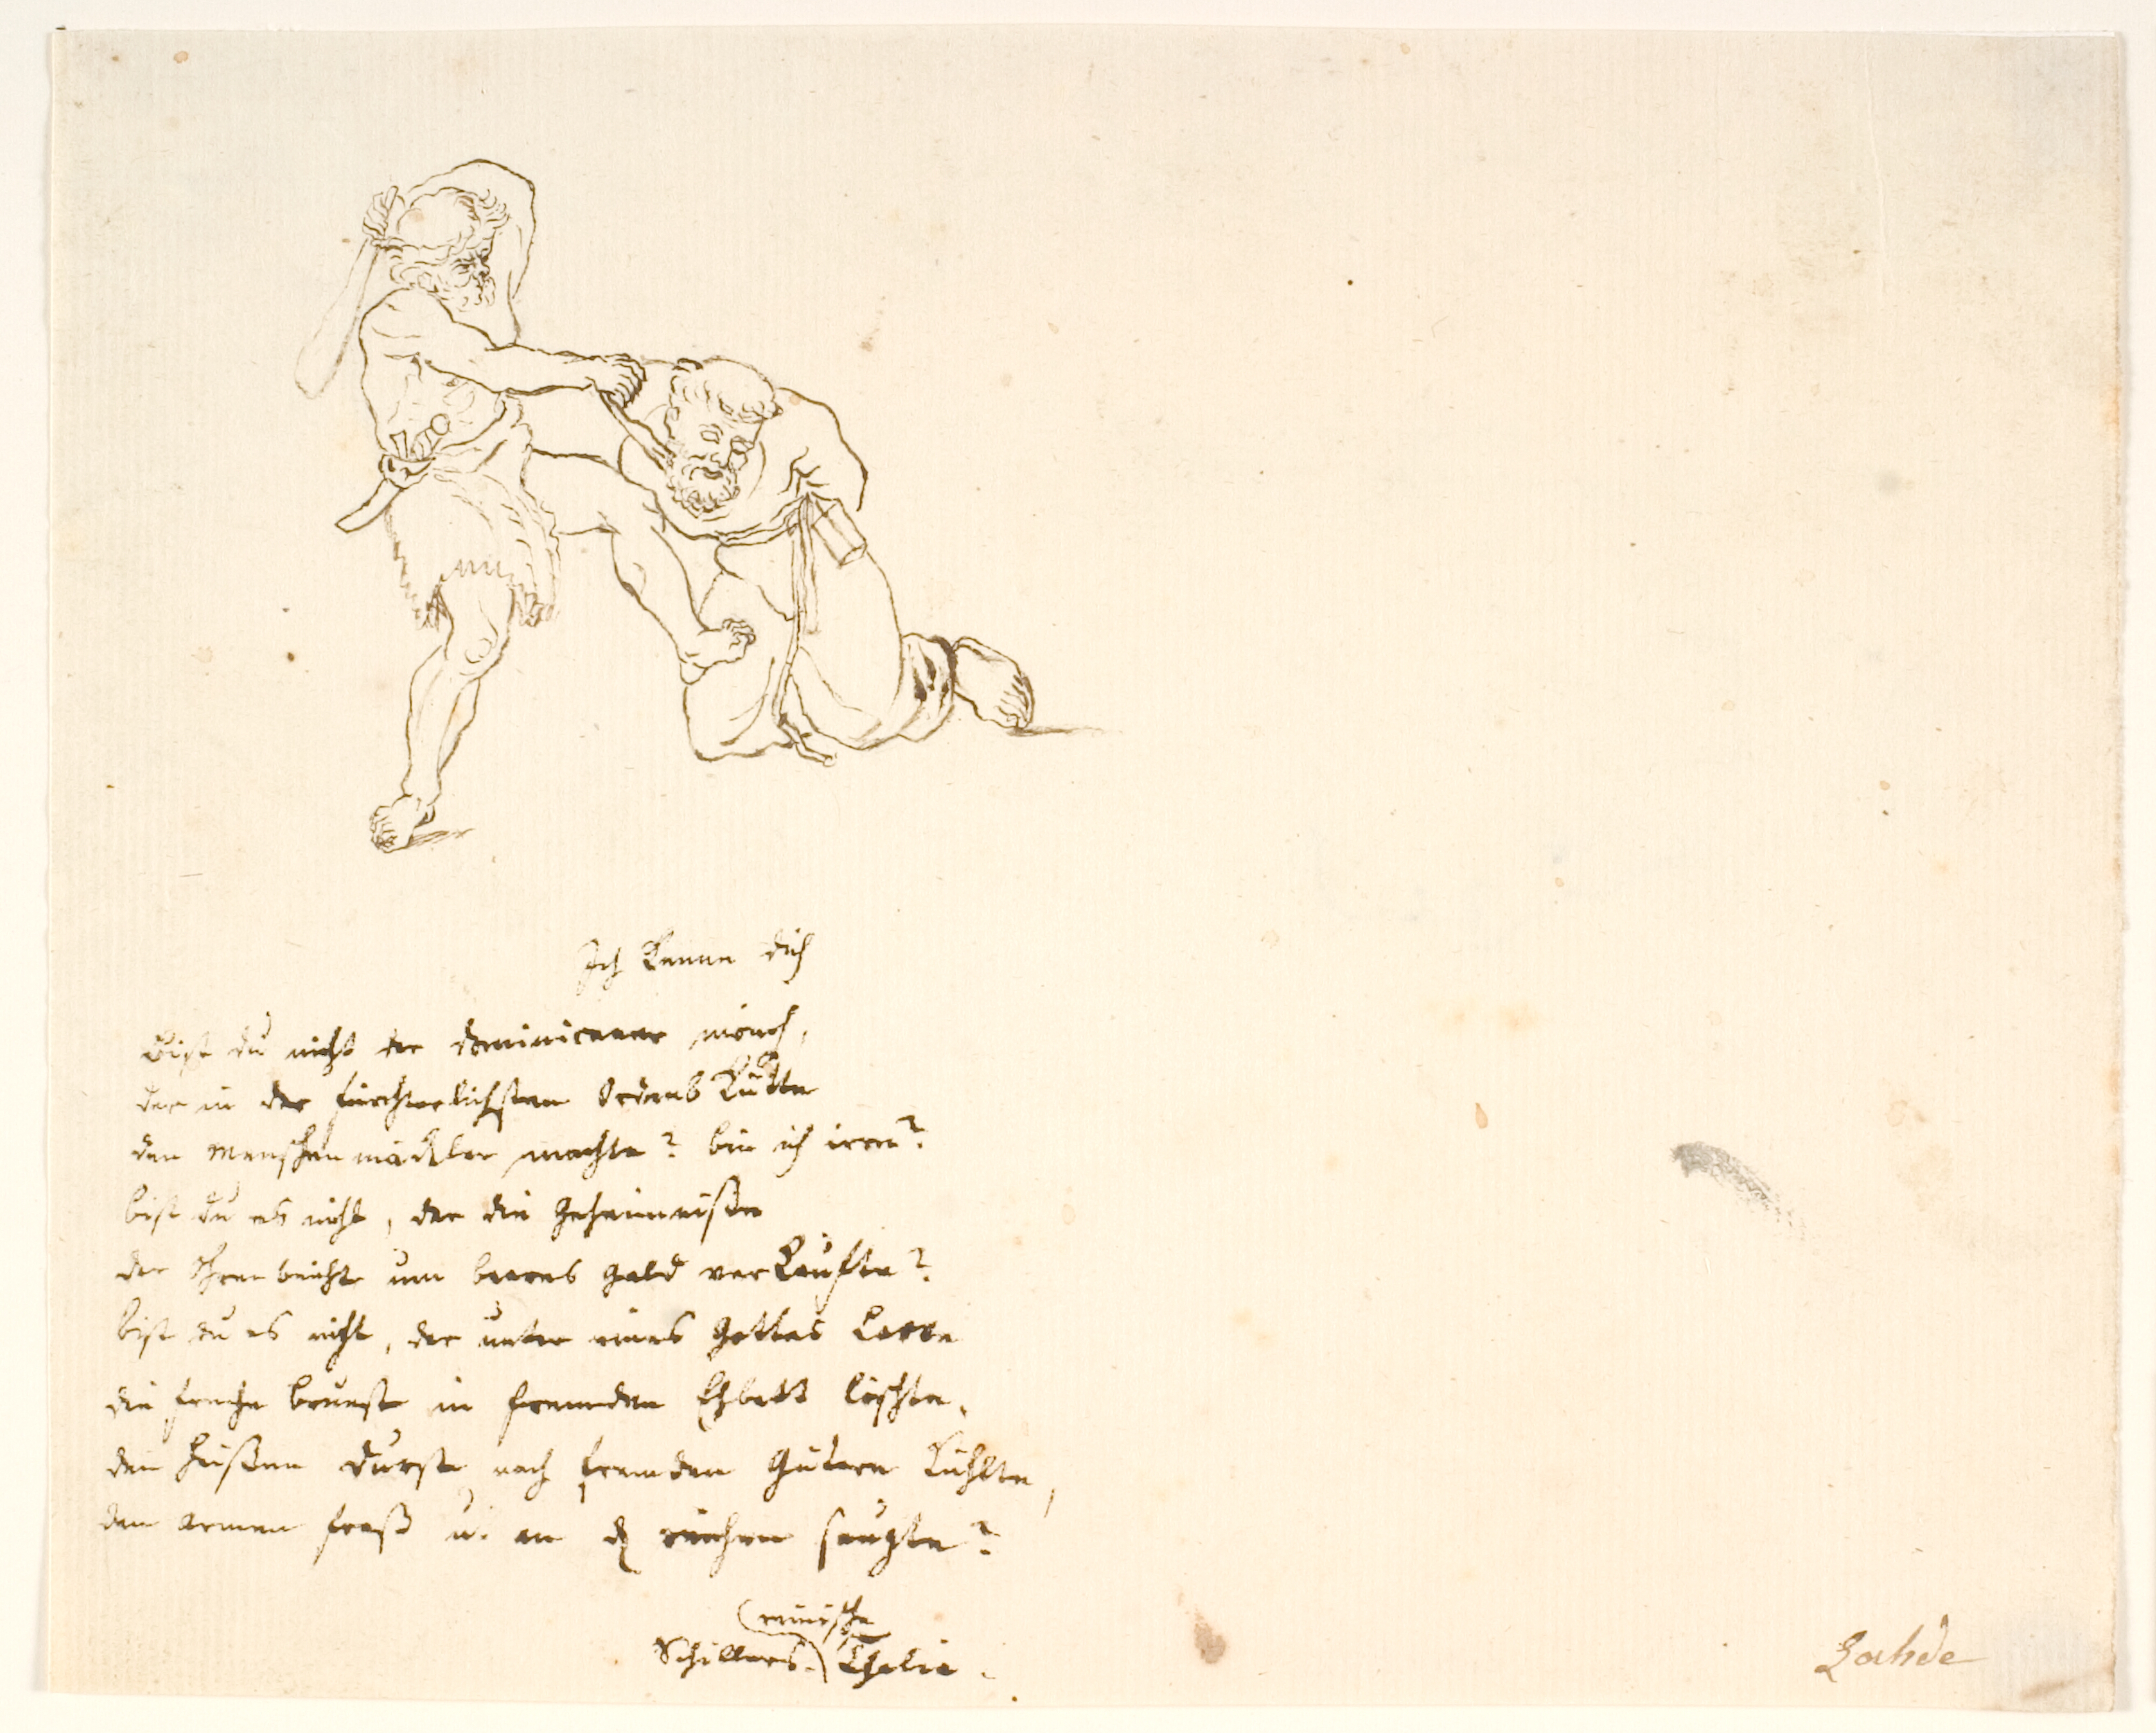 Ich kenne dich
Bist du nicht der dominicaner mönch,
der in der fürchterlichsten Ordens Kutte
den Menschenmäckler machte? bin ich irre?
bist du es nicht, der die Geheimniße
der Ohrenbeichte um baares Geld verkaufte?
bist du es nicht, der unter eines Gottes Larve
die freche brunst in fremden Ehbett löschte,
den heißen Durst nach fremden Gütern kühlte,
den armen fraß u. an d reichen saugte?
(reinische
Schillers.) Thalia.
Lahde